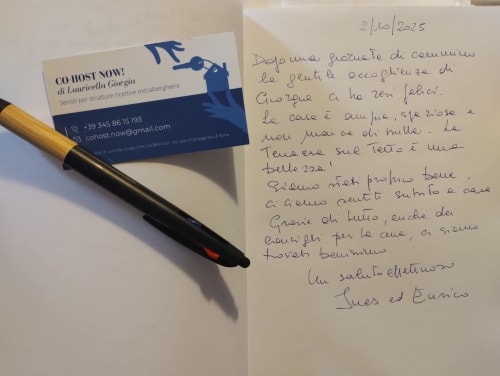 CO HOST NOW!
di Lauricella Giorgia
Servizi per strutture ricettive extralberghiere
+39 345 86 15 193
cohost.now@gmail.com
2/10/2025
Dopo una giornata di cammino
la gentile accoglienza di
Giorgia ci ha resi felici.
La casa è ampia, spaziosa e
non manca di nulla. La
Terrazza sul Tetto è una
bellezza!
Siamo stati proprio bene,
ci siamo sentiti subito a casa
Grazie di tutto, anche dei
consigli per la cena, ci siamo
trovati benissimo
Un saluto affettuoso
Ines ed Enrico